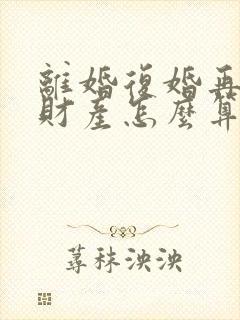 離婚復婚再
財產怎麼算
蕁秣泱泱